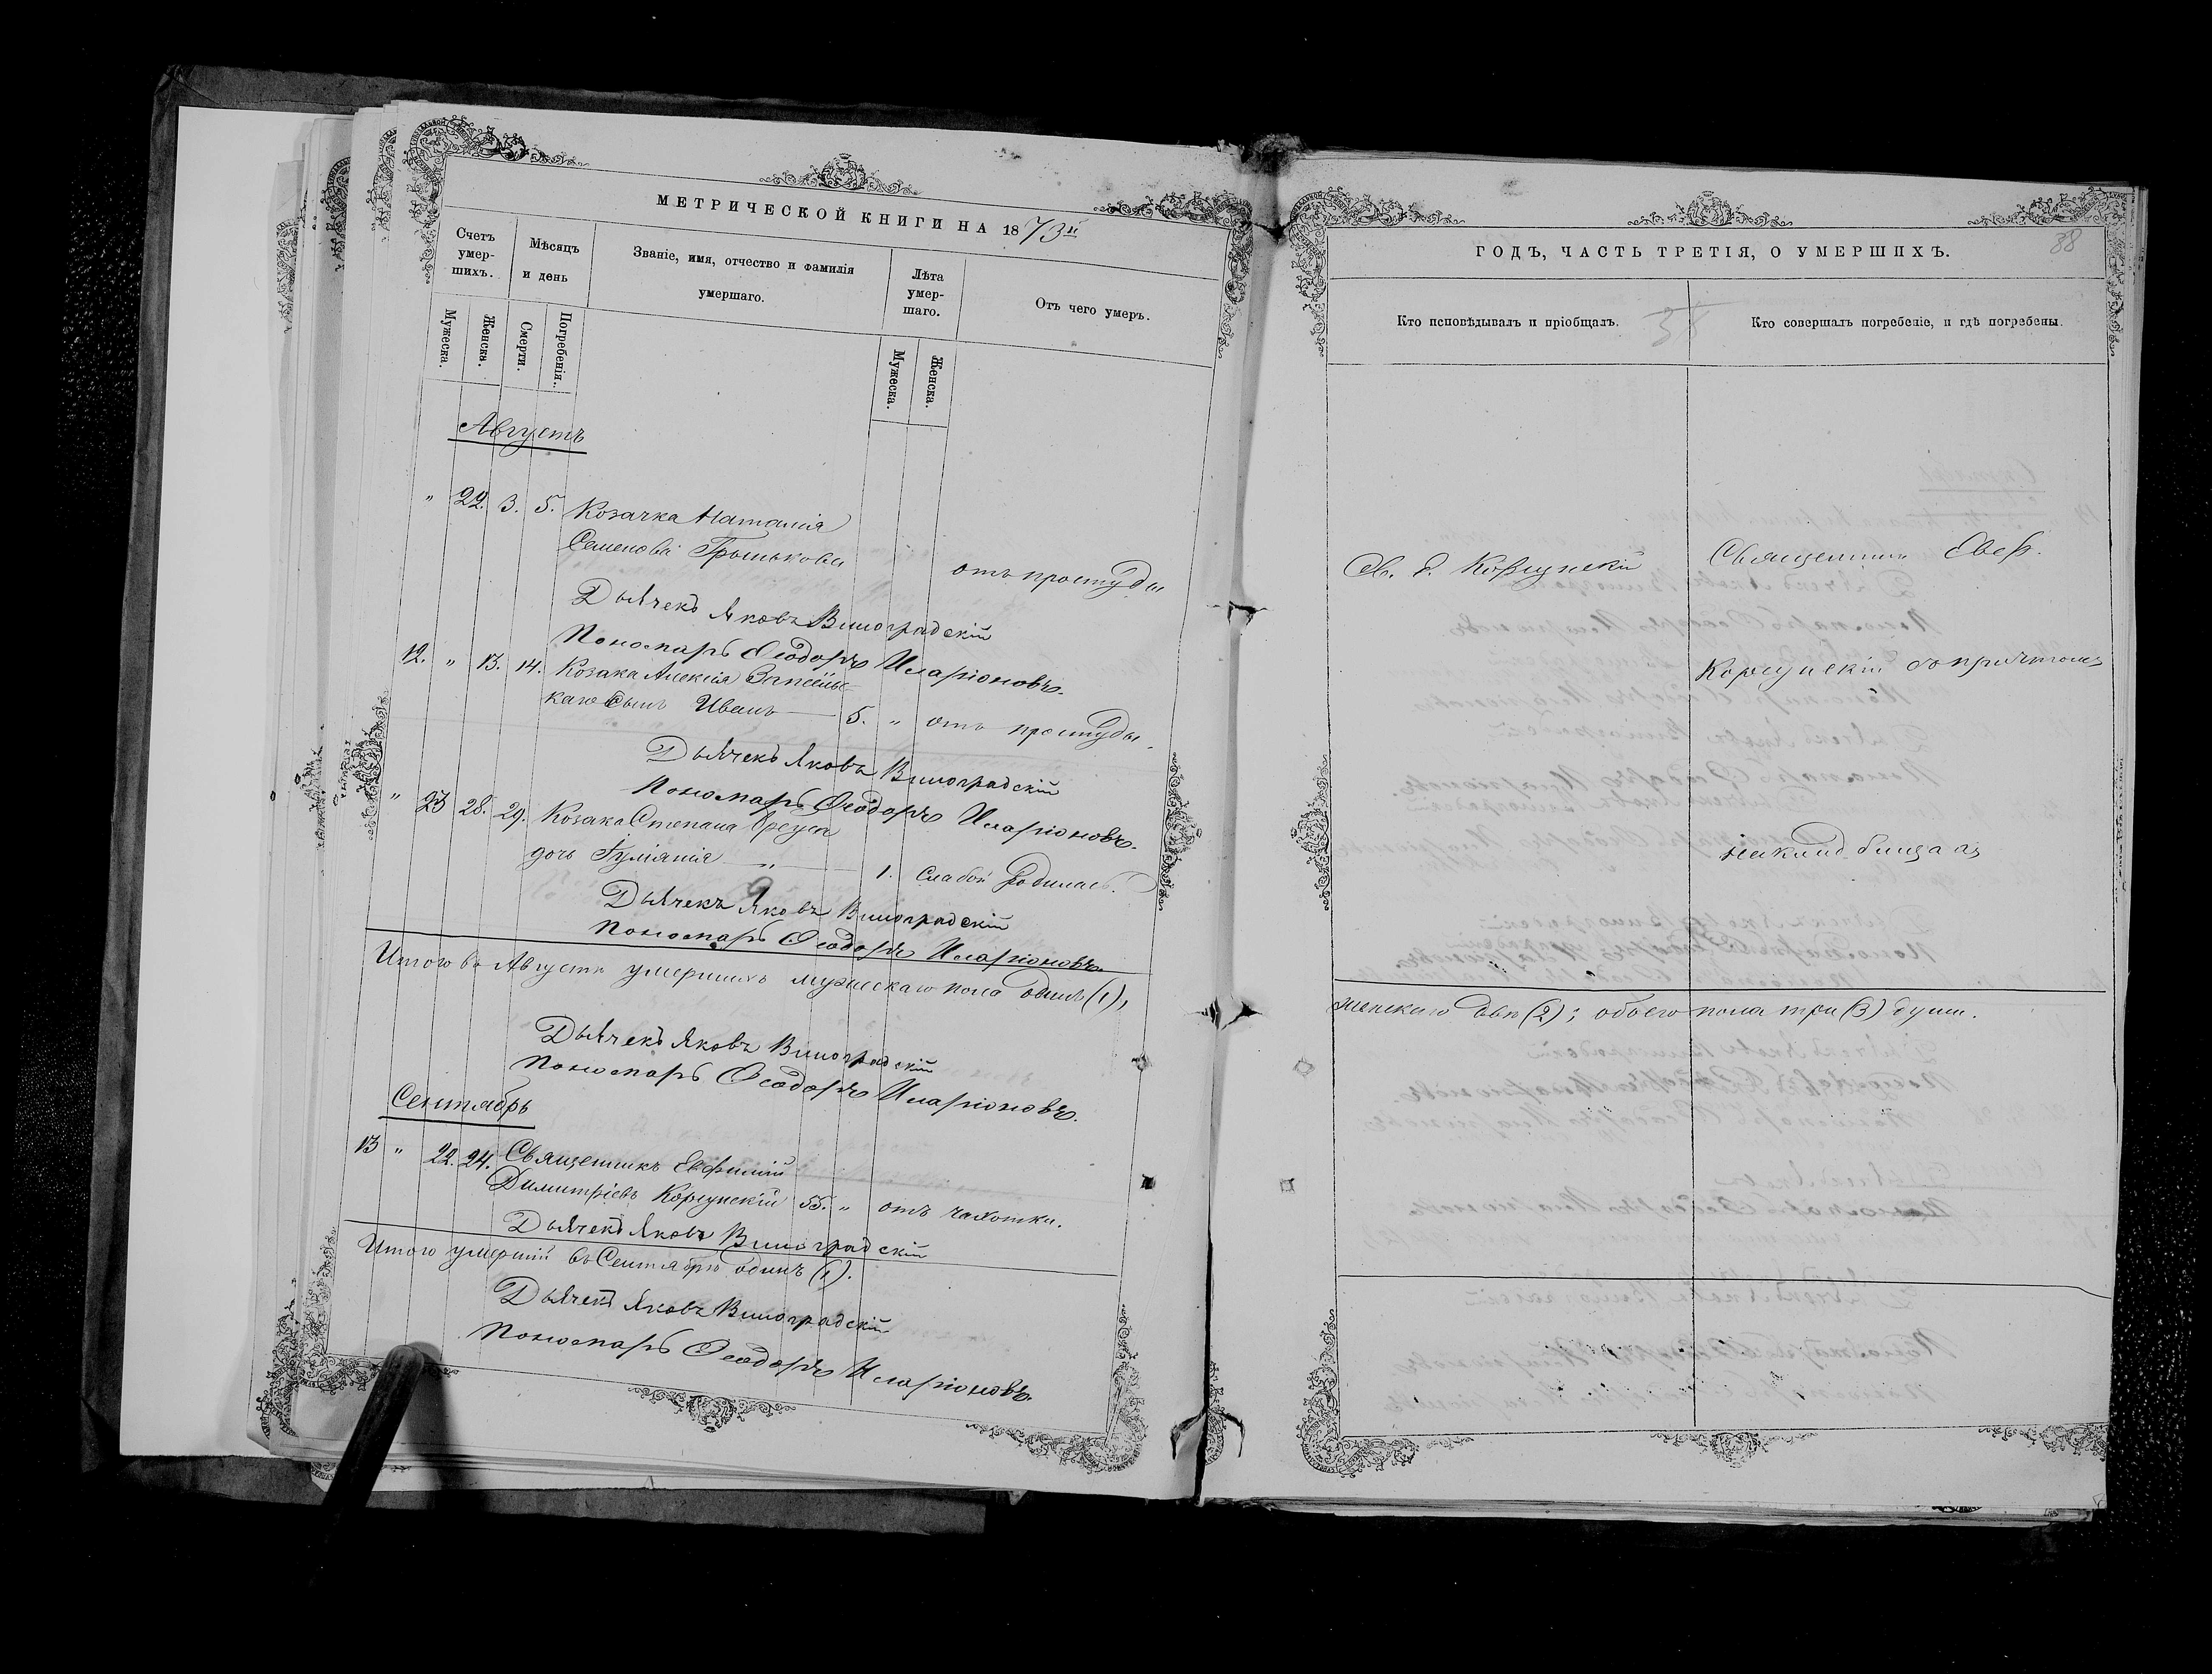 МЕТРИЧЕСКОЙ КНИГИ НА 1873й
Счетъ умер-шихъ.
Мѣсяцъ и день
Званіе, имя, отчество и фамилія умершаго.
Лѣта умер-шаго.
Отъ чего умеръ.
Мужеска.
Женска.
Смерти.
Погребенія.
Мужеска.
Женска.
Августъ
" 22. 3. 5. Козачка Наталія
Семенова Гринькова
отъ простуды
Дьячекъ Яковъ Виноградскій
Пономарь Ѳеодоръ Иларіоновъ.
12. " 13. 14. Козака Алексія
каго сынъ Иванъ 5. " отъ простуды.
Дьячекъ Яковъ Виноградскій
Пономарь Ѳеодоръ Иларіоновъ.
" 23 28. 29. Козака Степана
дочь Гуліянія " 1. Слабой родилась.
Дьячекъ Яковъ Виноградскій
Пономарь Ѳеодоръ Иларіоновъ.
Итого въ Августѣ умершихъ мужескаго пола одинъ (1),
Дьячекъ Яковъ Виноградскій
Пономарь Ѳеодоръ Иларіоновъ.
Сентябрь
13 " 22. 24. Священникъ Евфимій
Димитріевъ Корсунскій 55. " отъ чахотки.
Дьячекъ Яковъ Виноградскій
Итого умершій въ Сентябрѣ одинъ (1).
Дьячекъ Яковъ Виноградскій
Пономарь Ѳеодоръ Иларіоновъ.
ГОДЪ, ЧАСТЬ ТРЕТІЯ, О УМЕРШИХЪ.
88
Кто исповѣдывалъ и пріобщалъ.
38
Кто совершалъ погребеніе, и гдѣ погребены.
Св. Е. Корсунскій
Священникъ Евф.
Корсунскій съ причтомъ
на кладбищахъ
женскаго двѣ (2); обоего пола три (3) души.